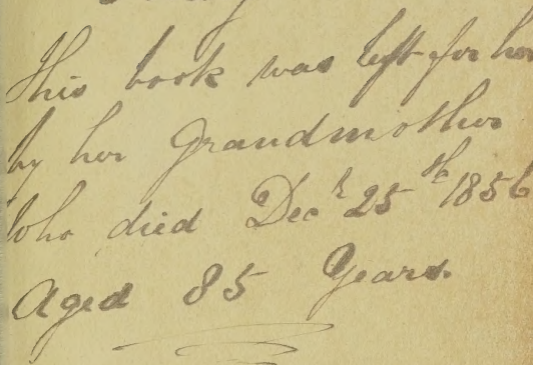 This book was left for her
by her Grandmother
who died Decr 25th 1856
Aged 85 Years.